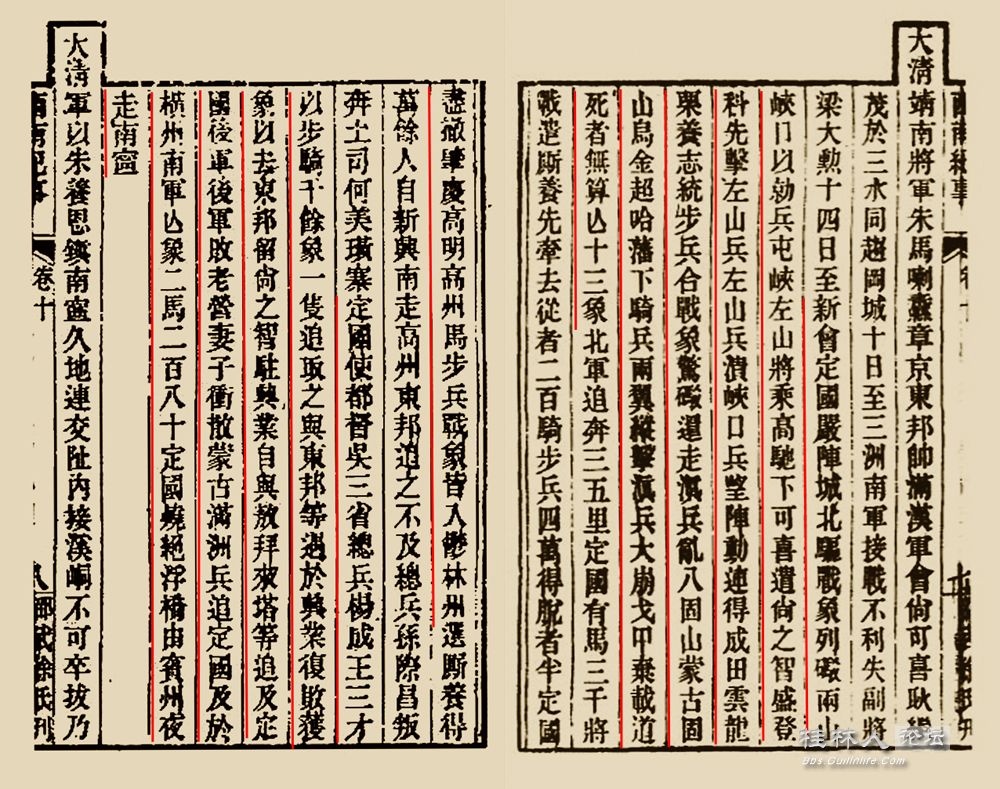 大清靖南將軍朱馬喇纛章京東邦帥滿漢軍會尙可喜耿繼
茂於三水同趨岡城十日至三洲南軍接戰不利失副將
梁大勲十四日至新會定國嚴陣城北驅戰象列礮兩山
峽口以勍兵屯峽左山將乘高馳下可喜遣尙之智盛登
科先擊左山兵左山兵潰峽口兵望陣動連得成田雲龍
栗養志統步兵合戰象驚礮還走滇兵亂八固山蒙古固
山烏金超哈藩下騎兵兩翼縱擊滇兵大崩戈甲棄載道
死者無算亾十三象北軍追奔三五里定國有馬三千將
戰遣厮養先牽去從者二百騎步兵四萬得脫者半定國
盡撤肇慶高明高州馬步兵戰象皆入鬱林州選厮養得
萬餘人自新興南走高州東邦追之不及總兵孫際昌叛
奔土司何美璜寨定國使都督吳三省總兵楊成王三才
以步騎千餘象一隻追取之與東邦等遇於興業復敗獲
象以去東邦留尙之智駐興業自與敖拜椒塔等追及定
國後軍後軍敗老營妻子衝散蒙古滿洲兵追定國及於
橫州南軍亾象二馬二百八十定國燒絕浮橋由賓州夜
走南寧
大清軍以朱養恩鎮南寧久地連交阯內接溪峒不可卒拔乃
卷十
八
桂林人论坛
Bbs.Guilinlife.Com